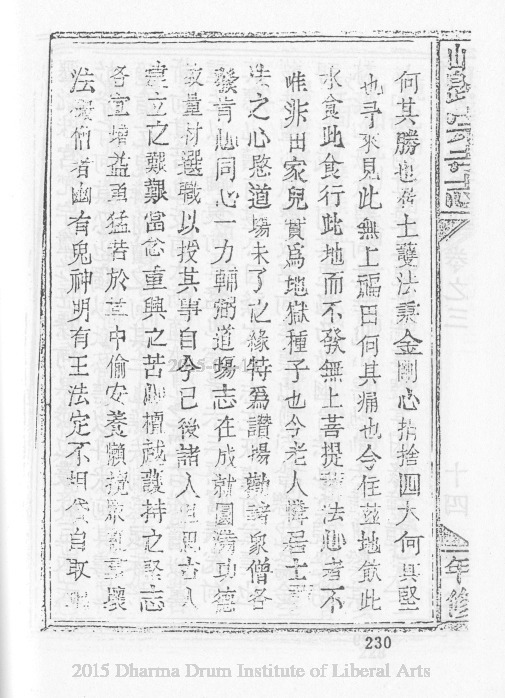 何其勝也 士護法秉金剛心捐捨四大何其堅
也尋來見此無上福田何其痛也今住茲地飲此
水食此食行此地而不發無上菩提 法心者不
唯非田家兒實為地獄種子也今老人 居士
生之心愍道場未了之緣特為讚揚勸諸眾僧各
發肯心同心一力輔弼道場志在成就圓滿功德
故量材選職以授其事自今已後諸人 思古人
建立之艱難當念重興之苦心檀越護持之堅志
各宜增益勇猛若於其中偷安養懶攪 壞
法毀僧者幽有鬼神明有王法定不相 自取
卷之三
十四
230
2015 Dharma Drum Institute of Liberal Arts